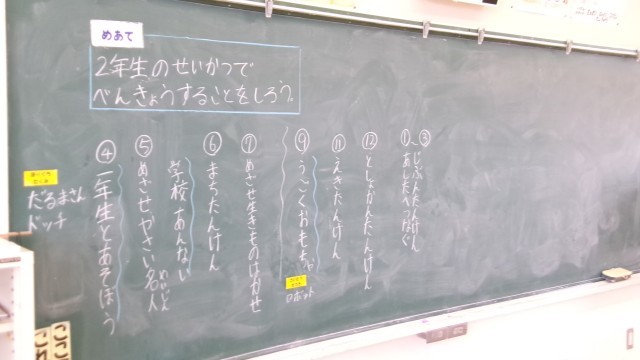 めあて
2年生のせいかつで
べんきょうすることをしろう。
だるまさん
ドッチ
④一年生とあそぼう
⑤めざせやさい名人
めいじん
学校あんない
⑥まちたんけん
⑦めざせ生きものはかせ
⑨うごくおもちゃ
ロボット
⑪えきたんけん
⑫としょかんたんけん
①、③
じぶんたんけん
あしたへつなぐ